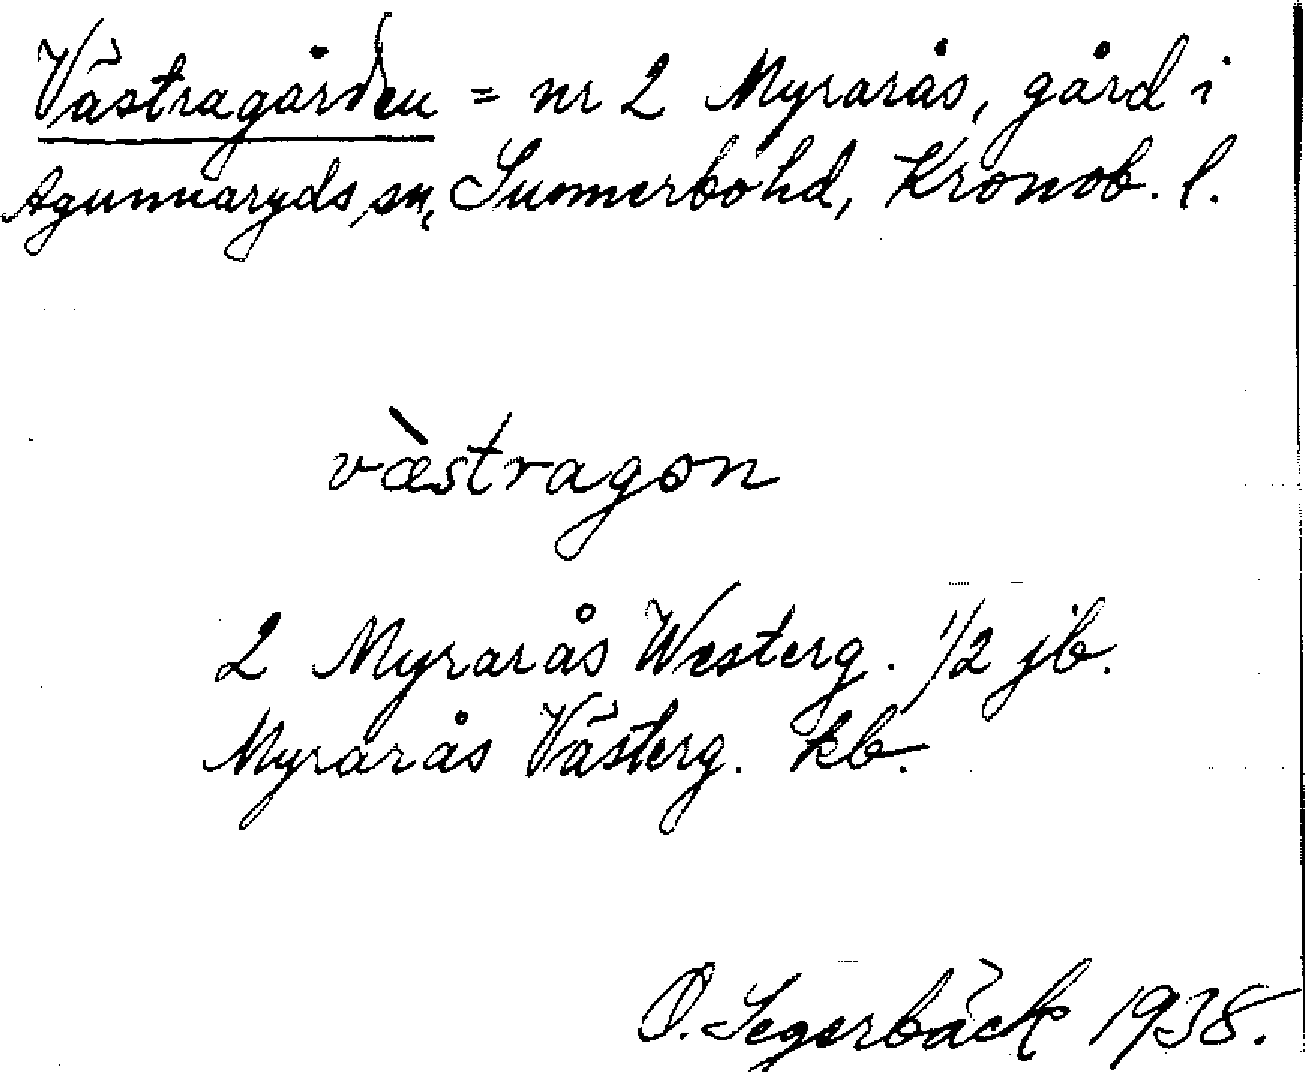 Västragården = nr 2 Myrarås, gård i
Agunnaryds sn, Sunnerbo hd, Kronob. l.
væ̀stragøn
2 Myrarås Westerg. 1/2 jb.
Myrarås Västerg. kb.
O. Segerbäck 1938.